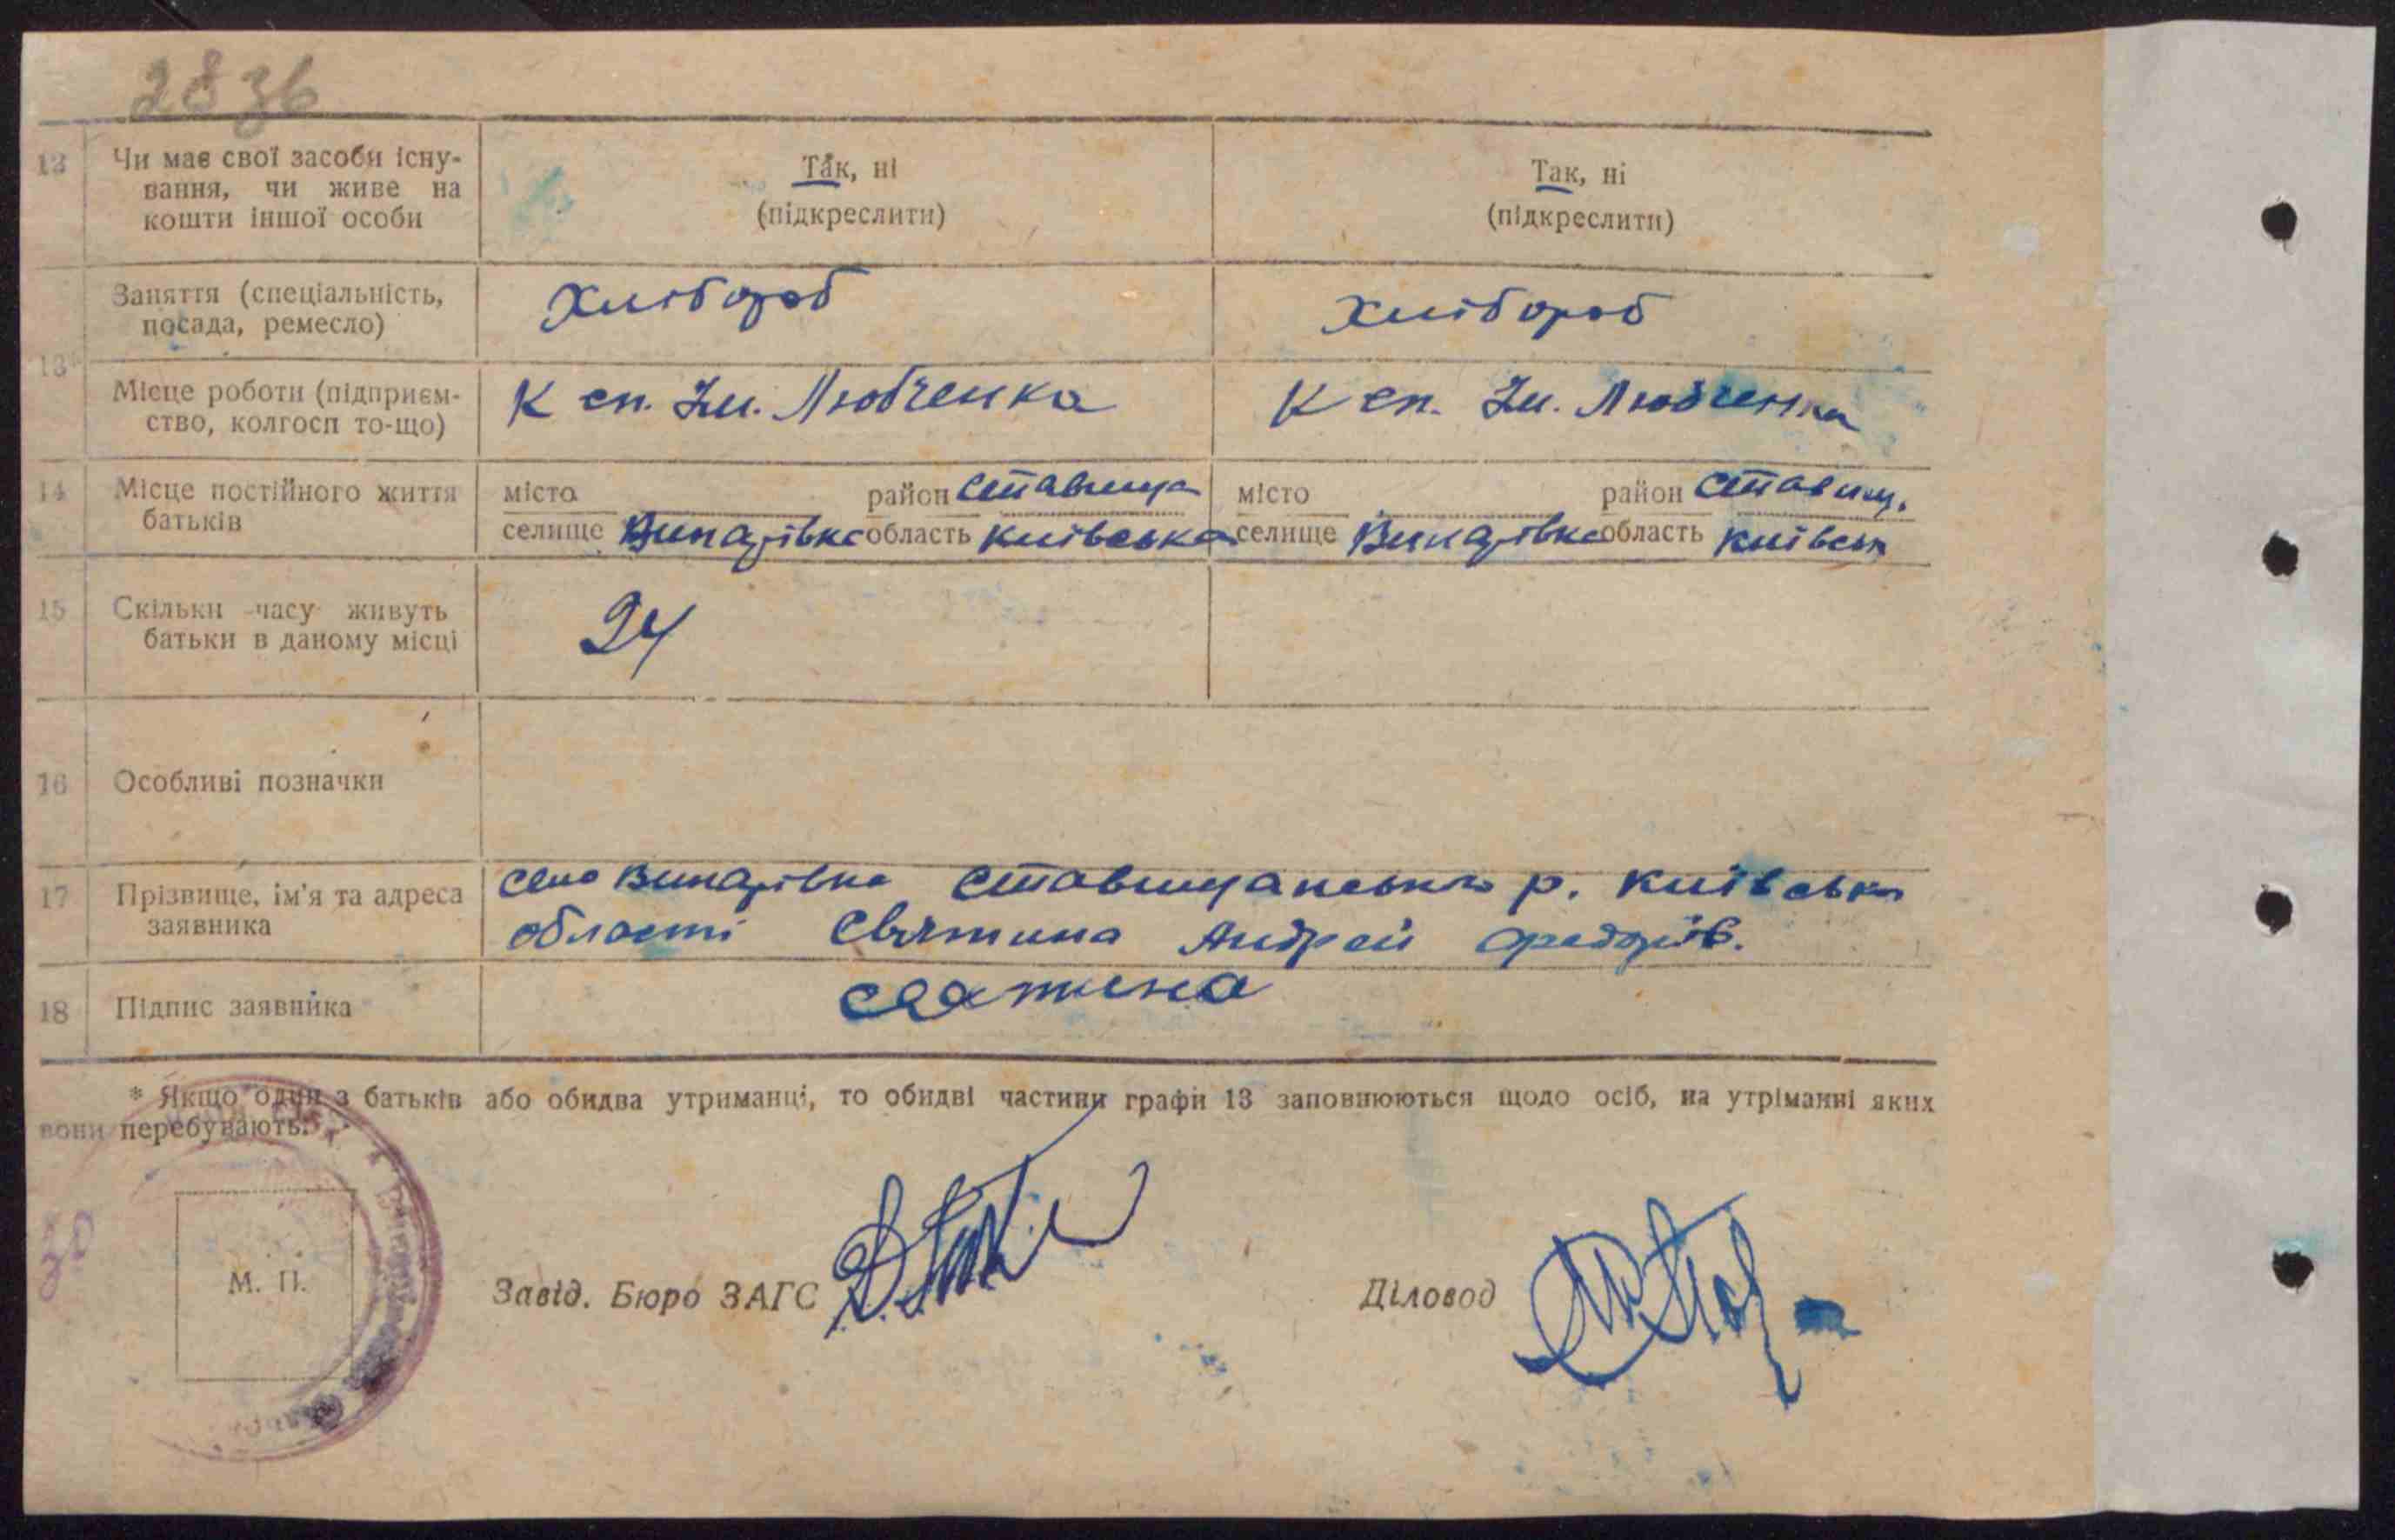 2836
13 Чи має свої засоби існу- Так, ні Так, ні
вання, чи живе на (підкреслити) (підкреслити)
кошти іншої особи
Заняття (спеціальність, Хлібороб Хлібороб
посада, ремесло)
13*
Місце роботи (підприєм- К сп. Ім. Любченка К сп. Ім. Любченка
ство, колгосп то-що)
14 Місце постійного життя місто район Ставища місто район Ставищ.
батьків селище Винарівка область Київська селище Винарівка область Київськ
15 Скільки часу живуть 24
батьки в даному місці
16 Особливі позначки
17 Прізвище, ім'я та адреса село Винарівка Ставищанського р. Київська
заявника області Святина Андрей Федорів.
18 Підпис заявника Святина
* Якщо один з батьків або обидва утриманці, то обидві частини графи 13 заповнюються щодо осіб, на утріманні яких
вони перебувають.
М. П. Завід. Бюро ЗАГС Діловод